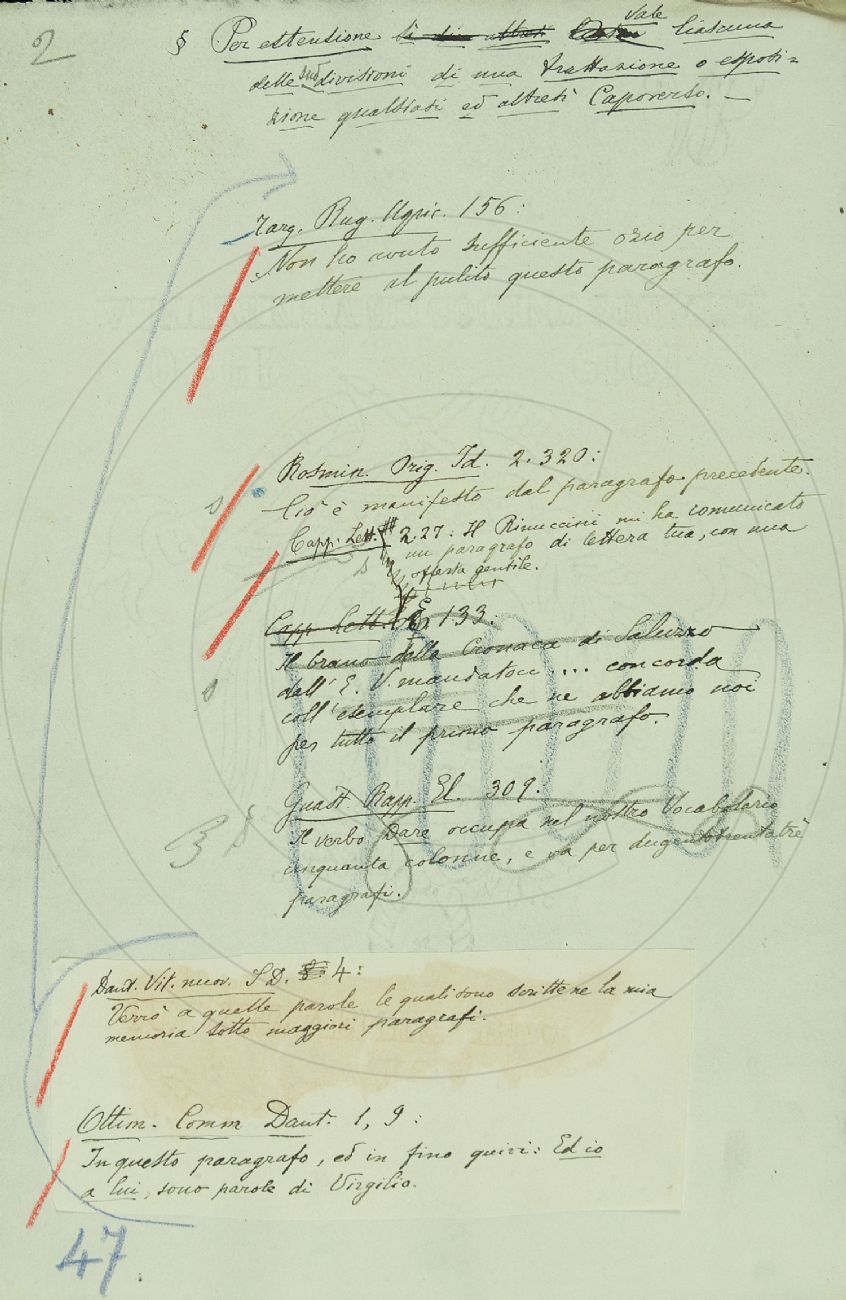 2
§ Per estensione si dice altresì vale Ciascuna
delle suddivisioni di una trattazione o esposi=
zione qualsiasi ed altresì Capoverso. —
Targ. Rag. Agric. 156:
Non ho avuto sufficiente ozio per
mettere al pulito questo paragrafo.
Rosmin. Orig. Id. 2. 320:
Ciò è manifesto dal paragrafo precedente.
Capp. Lett. 2. 27: Il Rinuccini mi ha comunicato
un paragrafo di lettera tua, con una
offerta gentile.
Capp. Lett. 133:
Il brano della Cronaca di Saluzzo
dall' E. V. mandatoci ... concorda
coll' esemplare che ne abbiamo noi
per tutto il primo paragrafo.
Guast. Rapp. El. 309:
Il verbo Dare occupa nel nostro Vocabolario
cinquanta colonne, e va per dugentotrentatrè
paragrafi.
3
Dant. Vit. nuov. S. D. 4:
Verrò a quelle parole le quali sono scritte ne la mia
memoria sotto maggiori paragrafi.
Ottim. Comm. Dant. 1, 9:
In questo paragrafo, ed in fino quivi: Ed io
a lui, sono parole di Virgilio.
47